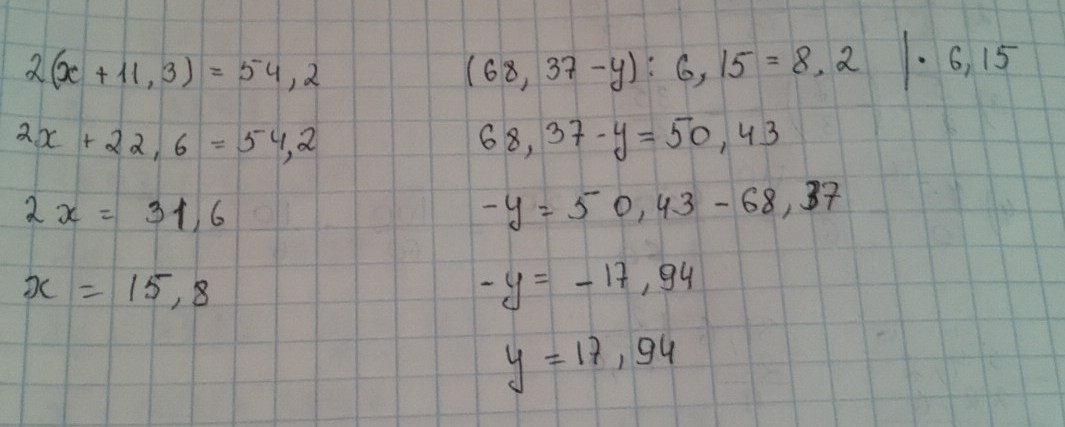 2(x + 11,3) = 54,2
2x + 22,6 = 54,2
2x = 31,6
x = 15,8
(68,37 - y) : 6,15 = 8,2 | · 6,15
68,37 - y = 50,43
-y = 50,43 - 68,37
-y = -17,94
y = 17,94